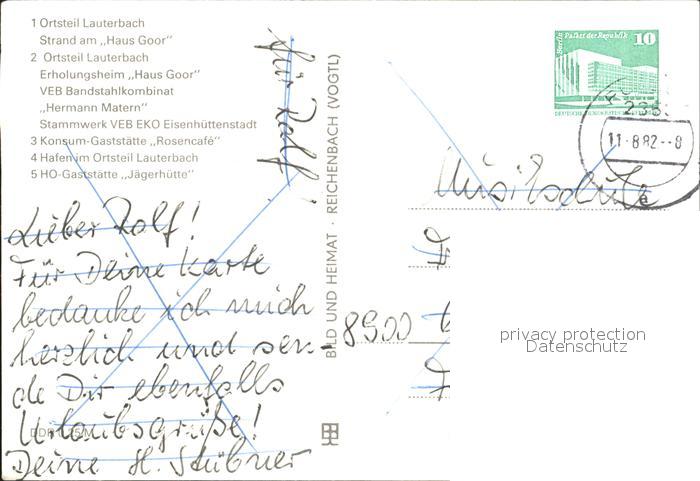 1 Ortsteil Lauterbach
Strand am „Haus Goor“
2 Ortsteil Lauterbach
Erholungsheim „Haus Goor“
VEB Bandstahlkombinat
„Hermann Matern“
Stammwerk VEB EKO Eisenhüttenstadt
3 Konsum-Gaststätte „Rosencafé“
4 Hafen im Ortsteil Lauterbach
5 HO-Gaststätte „Jägerhütte“
für Rolf!
Lieber Rolf!
Für Deine Karte
bedanke ich mich
herzlich und sen-
de Dir ebenfalls
Urlaubsgrüße!
Deine H. Stübner
BILD UND HEIMAT · REICHENBACH (VOGTL)
Berlin Palast der Republik
10
11-8.82--8
a
Musikschule
8900
privacy protection
Datenschutz